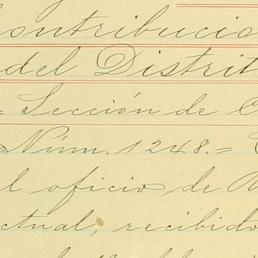 Contribucio
del Distrit
= Sección de C
Núm. 1248.=
l oficio de
ctual, recibido